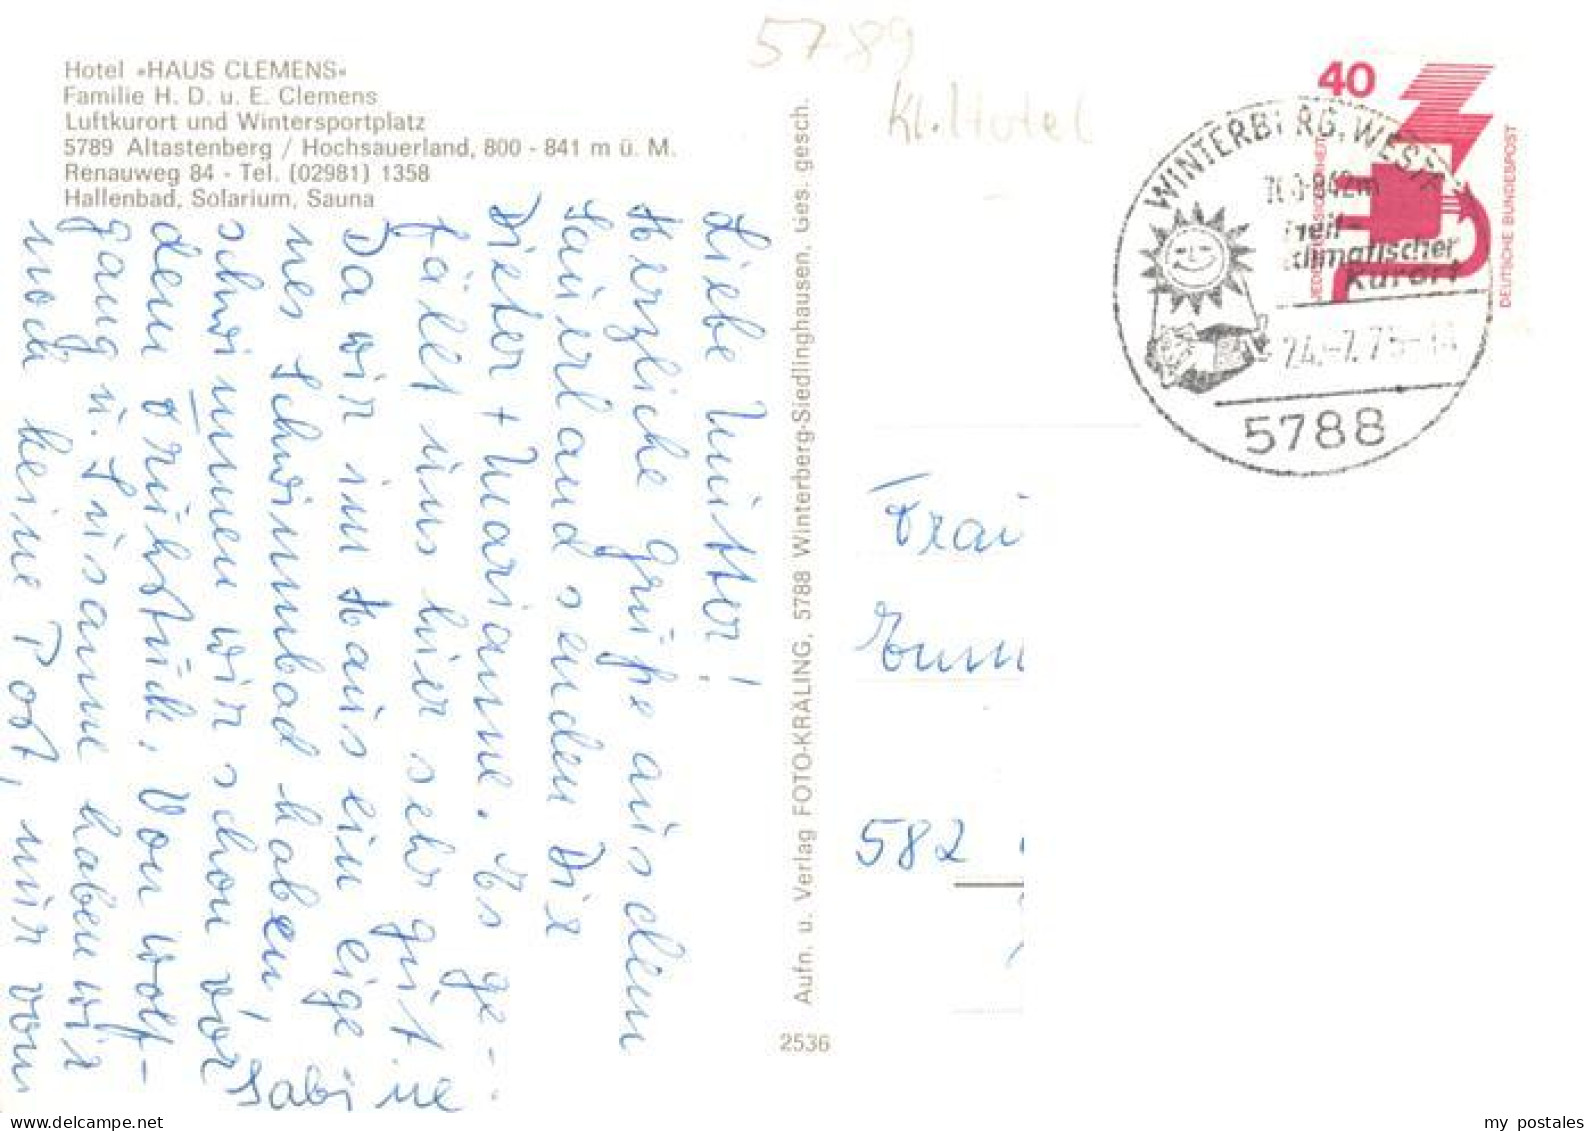 Hotel »HAUS CLEMENS«
Familie H. D. u. E. Clemens
Luftkurort und Wintersportplatz
5789 Altastenberg / Hochsauerland, 800 - 841 m ü. M.
Renauweg 84 - Tel. (02981) 1358
Hallenbad, Solarium, Sauna
Liebe Mutter!
Herzliche Grüße aus dem
Sauerland senden Dir
Dieter + Marianne. Es ge-
fällt uns hier sehr gut.
Da wir im Haus ein eige
nes Schwimmbad haben,
schwimmen wir schon vor
dem Frühstück. Von Wolf-
gang u. Susanne haben wir
noch keine Post, nur von
Sabine
Aufn. u. Verlag FOTO-KRÄLING, 5788 Winterberg-Siedlinghausen, Ges. gesch.
2536
5789
Kl. Hotel
40
DEUTSCHE BUNDESPOST
WINTERBERG, WESTF
842m
Heil-
klimatischer
Kurort
24.-7.75-
5788
Frau
582
my postales